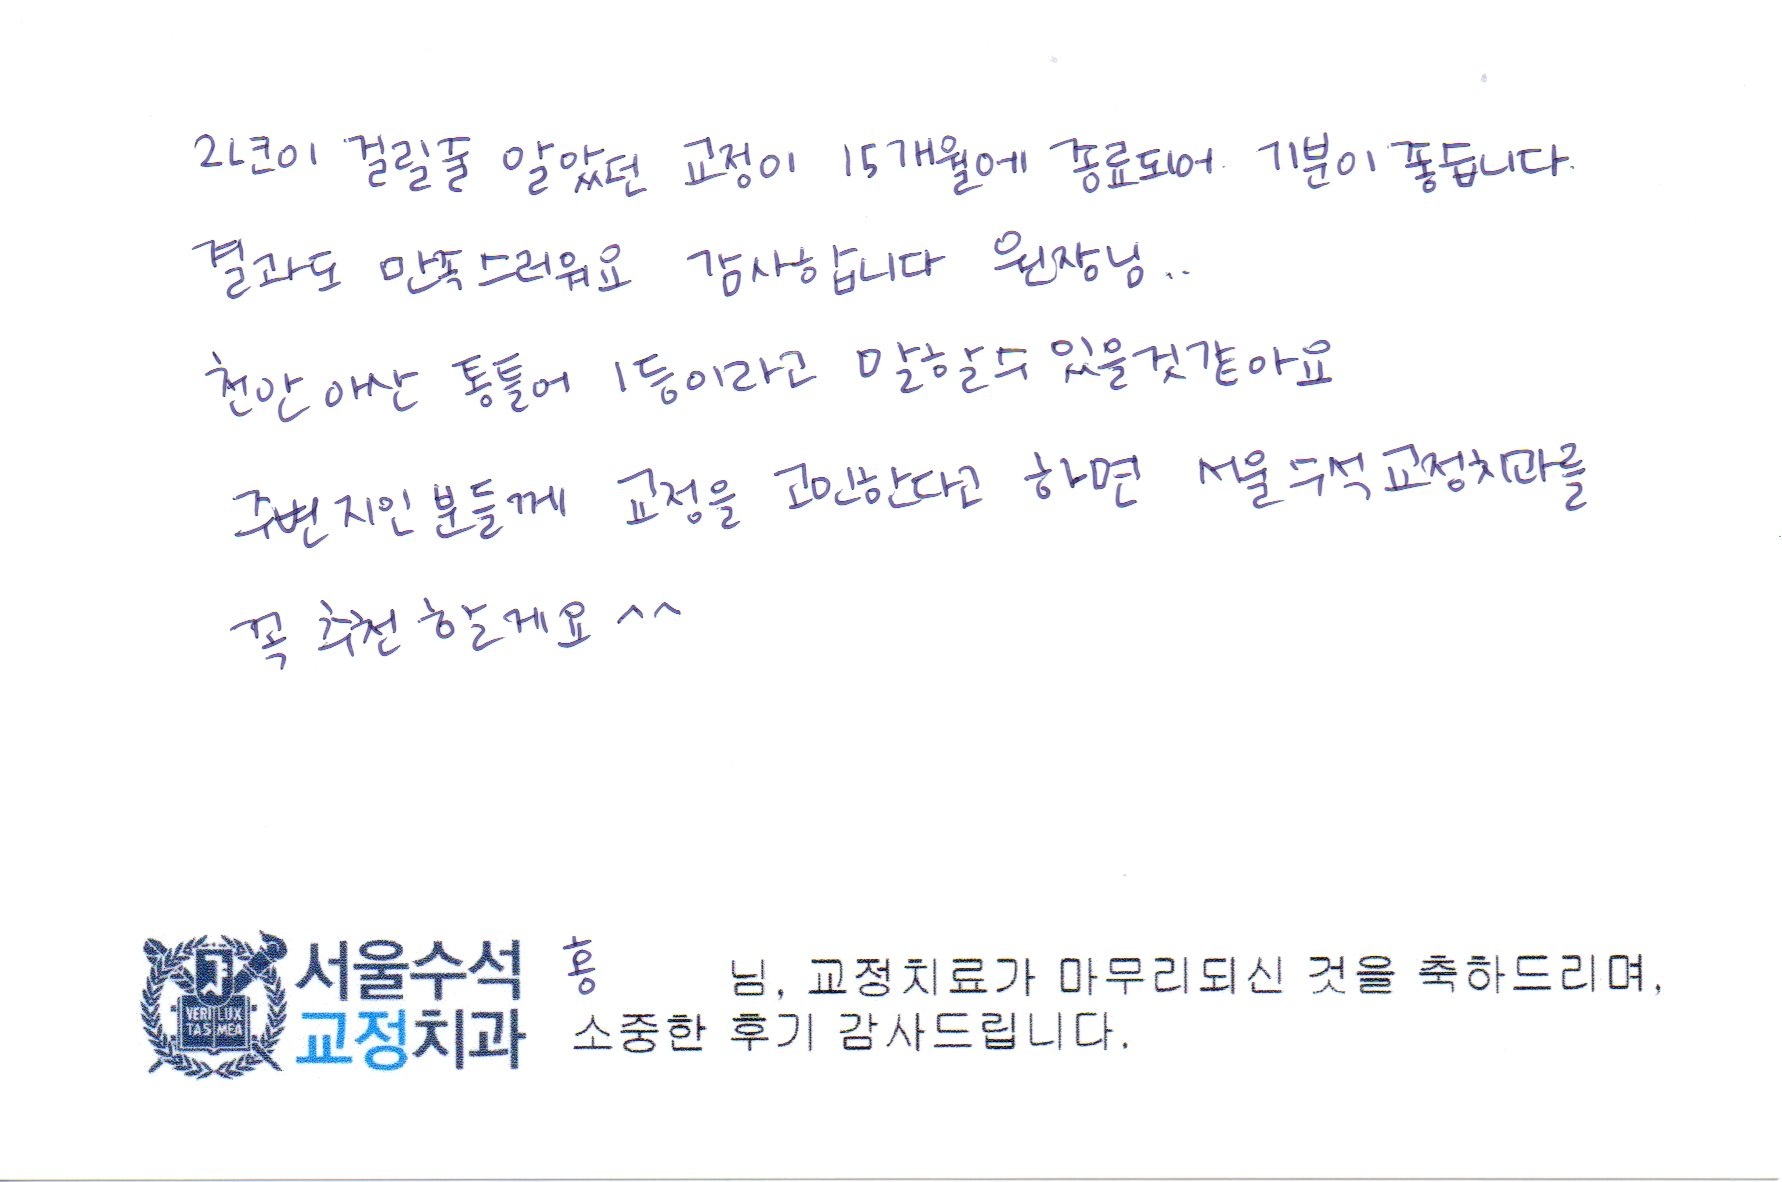 2년이 걸릴줄 알았던 교정이 15개월에 종료되어 기분이 좋습니다.
결과도 만족스러워요 감사합니다 원장님..
천안아산 통틀어 1등이라고 말할수있을것같아요
주변지인분들께 교정을 고민한다고 하면 서울수석교정치과를
꼭 추천할게요^^
서울수석
교정치과
VERI LUX
TAS MEA
홍 님, 교정치료가 마무리되신 것을 축하드리며,
소중한 후기 감사드립니다.